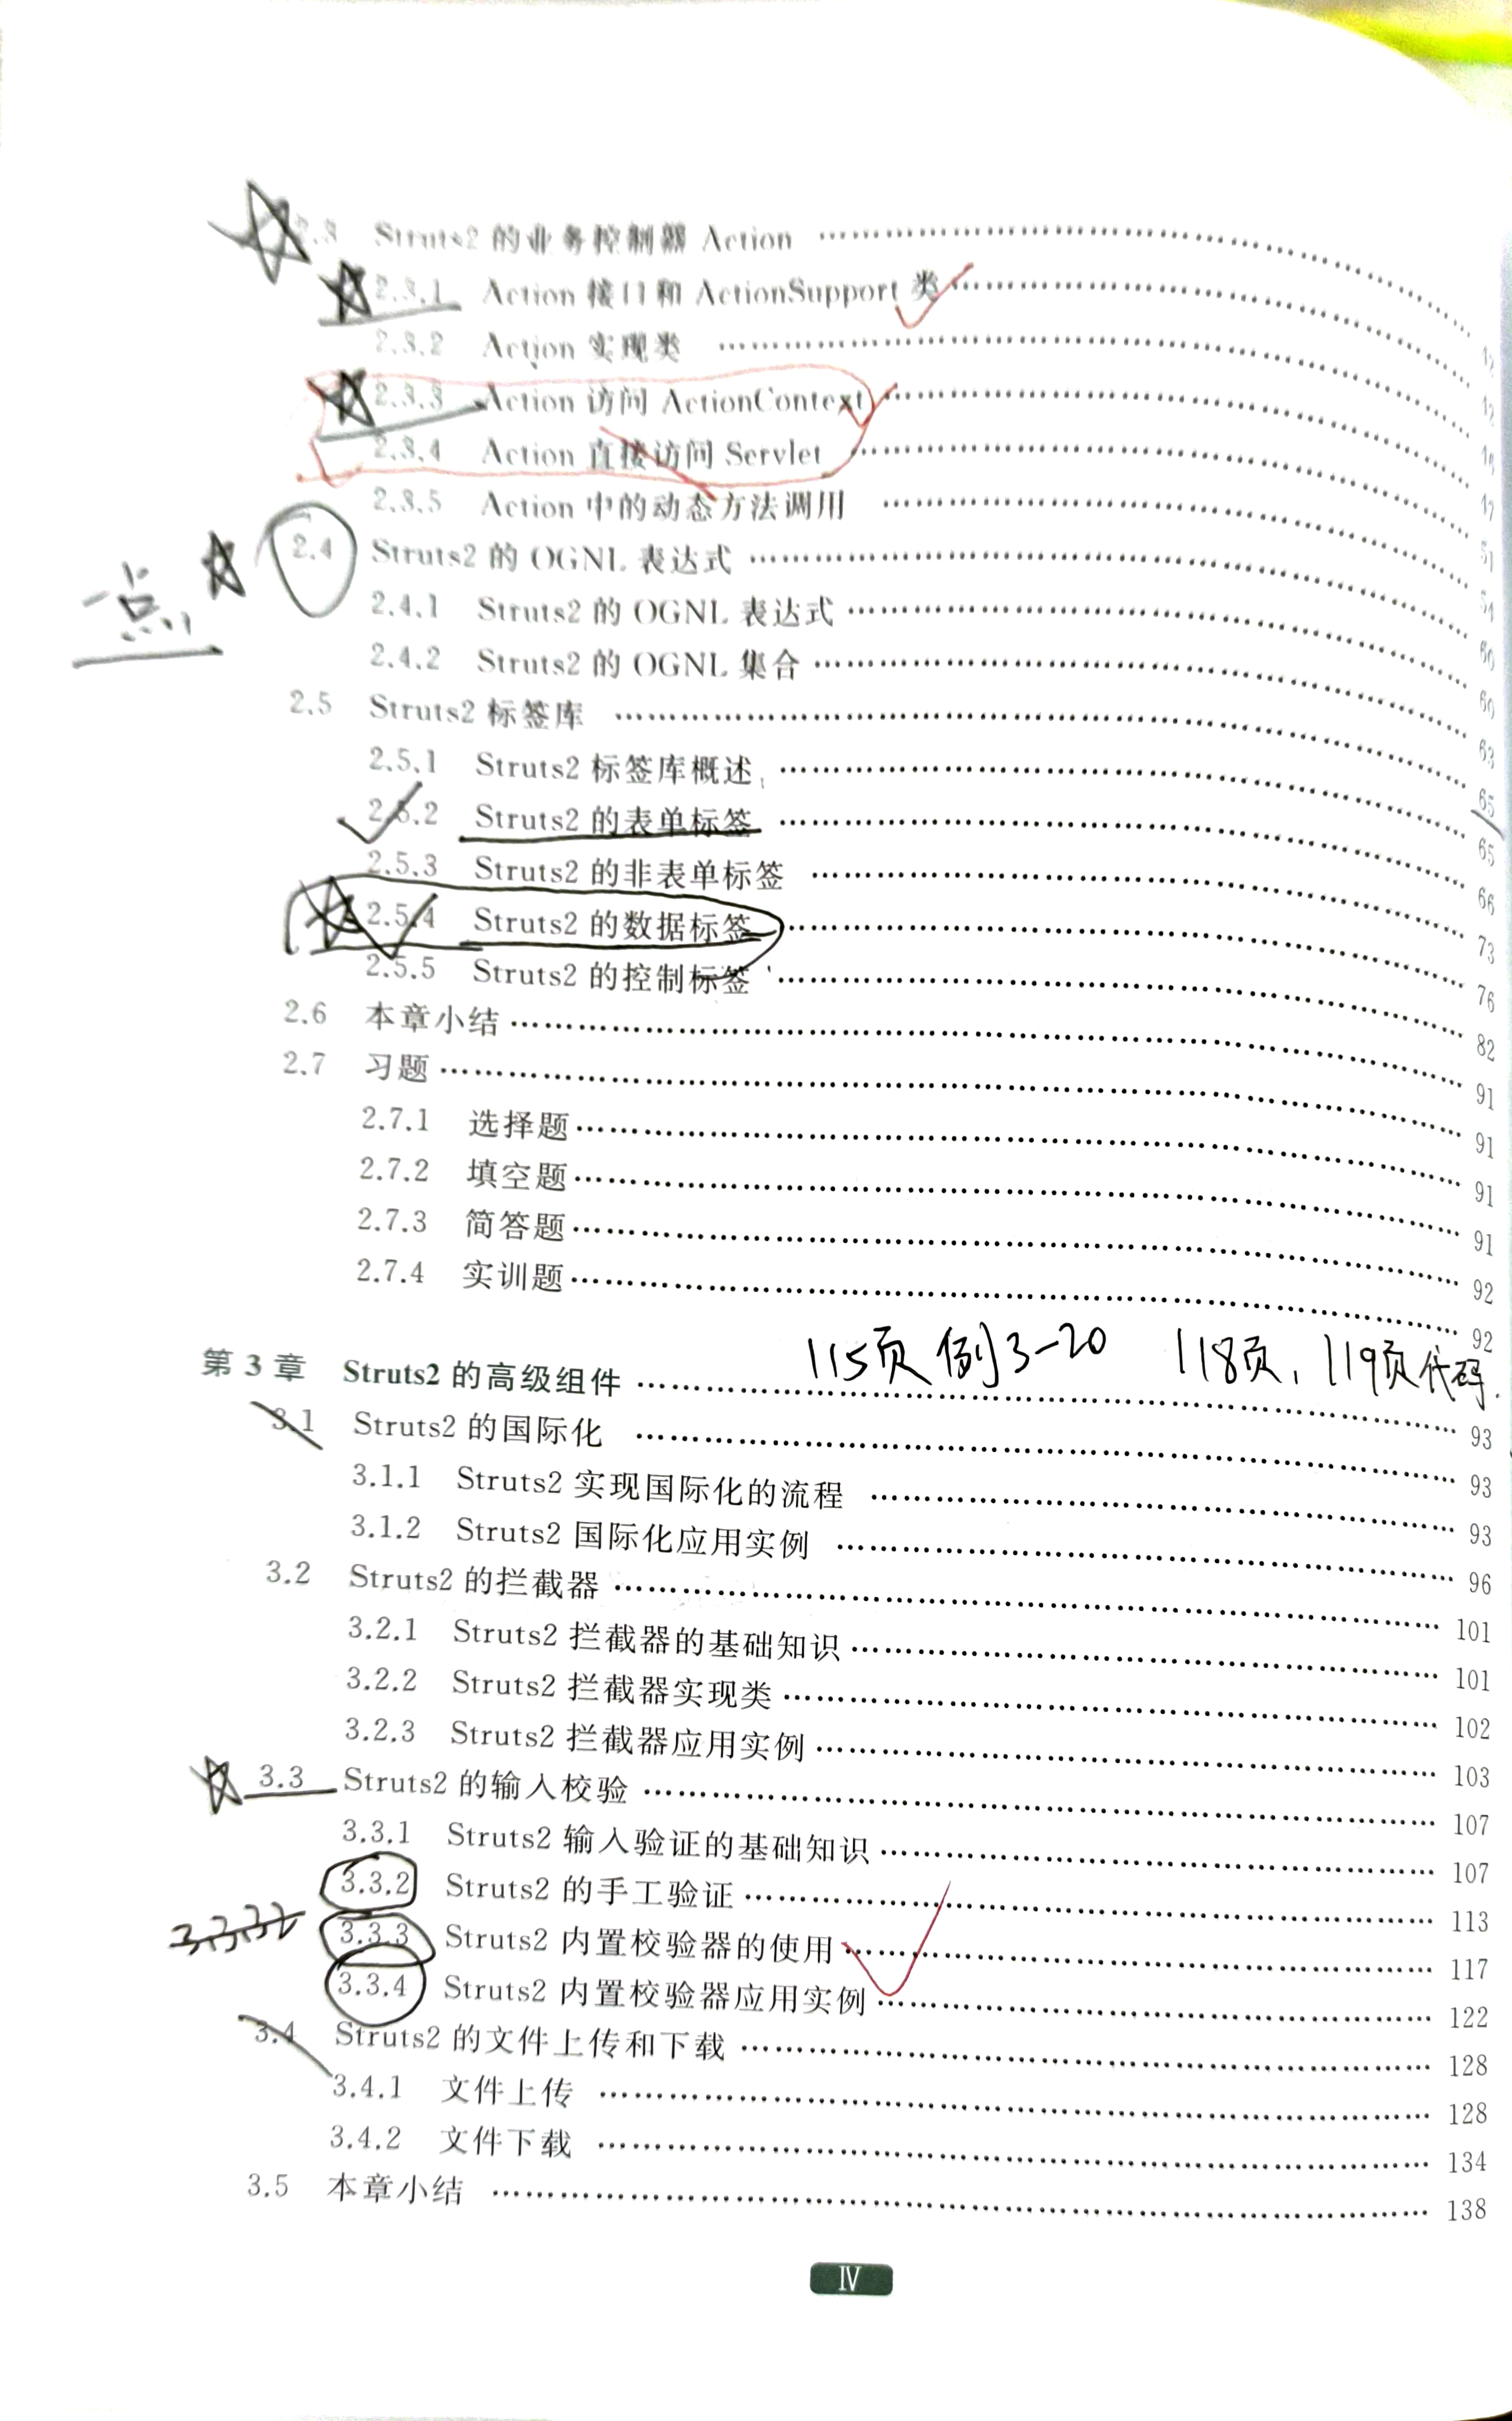 2.3 Struts2 的业务控制器 Action
2.3.1 Action 接口和 ActionSupport 类
2.3.2 Action 实现类
2.3.3 Action 访问 ActionContext
2.3.4 Action 直接访问 Servlet
2.3.5 Action 中的动态方法调用
一点 2.4 Struts2 的 OGNL 表达式
2.4.1 Struts2 的 OGNL 表达式 60
2.4.2 Struts2 的 OGNL 集合 63
2.5 Struts2 标签库 65
2.5.1 Struts2 标签库概述 65
2.5.2 Struts2 的表单标签 66
2.5.3 Struts2 的非表单标签 73
2.5.4 Struts2 的数据标签 76
2.5.5 Struts2 的控制标签 82
2.6 本章小结 91
2.7 习题 91
2.7.1 选择题 91
2.7.2 填空题 91
2.7.3 简答题 92
2.7.4 实训题 92
115页 例3-20 118页, 119页代码.
第 3 章 Struts2 的高级组件 93
3.1 Struts2 的国际化 93
3.1.1 Struts2 实现国际化的流程 93
3.1.2 Struts2 国际化应用实例 96
3.2 Struts2 的拦截器 101
3.2.1 Struts2 拦截器的基础知识 101
3.2.2 Struts2 拦截器实现类 102
3.2.3 Struts2 拦截器应用实例 103
3.3 Struts2 的输入校验 107
3.3.1 Struts2 输入验证的基础知识 107
3.3.2 Struts2 的手工验证 113
3.3.3 Struts2 内置校验器的使用 117
3.3.4 Struts2 内置校验器应用实例 122
3.4 Struts2 的文件上传和下载 128
3.4.1 文件上传 128
3.4.2 文件下载 134
3.5 本章小结 138
IV